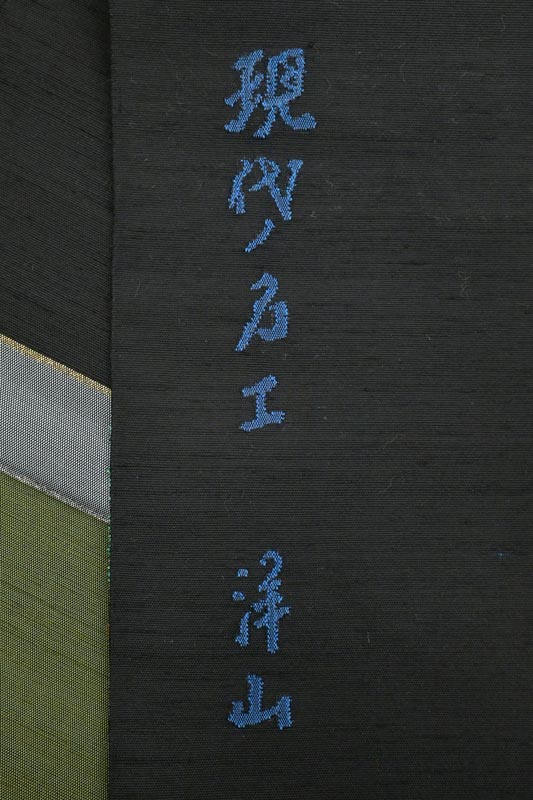 現代ノ名工 洋山